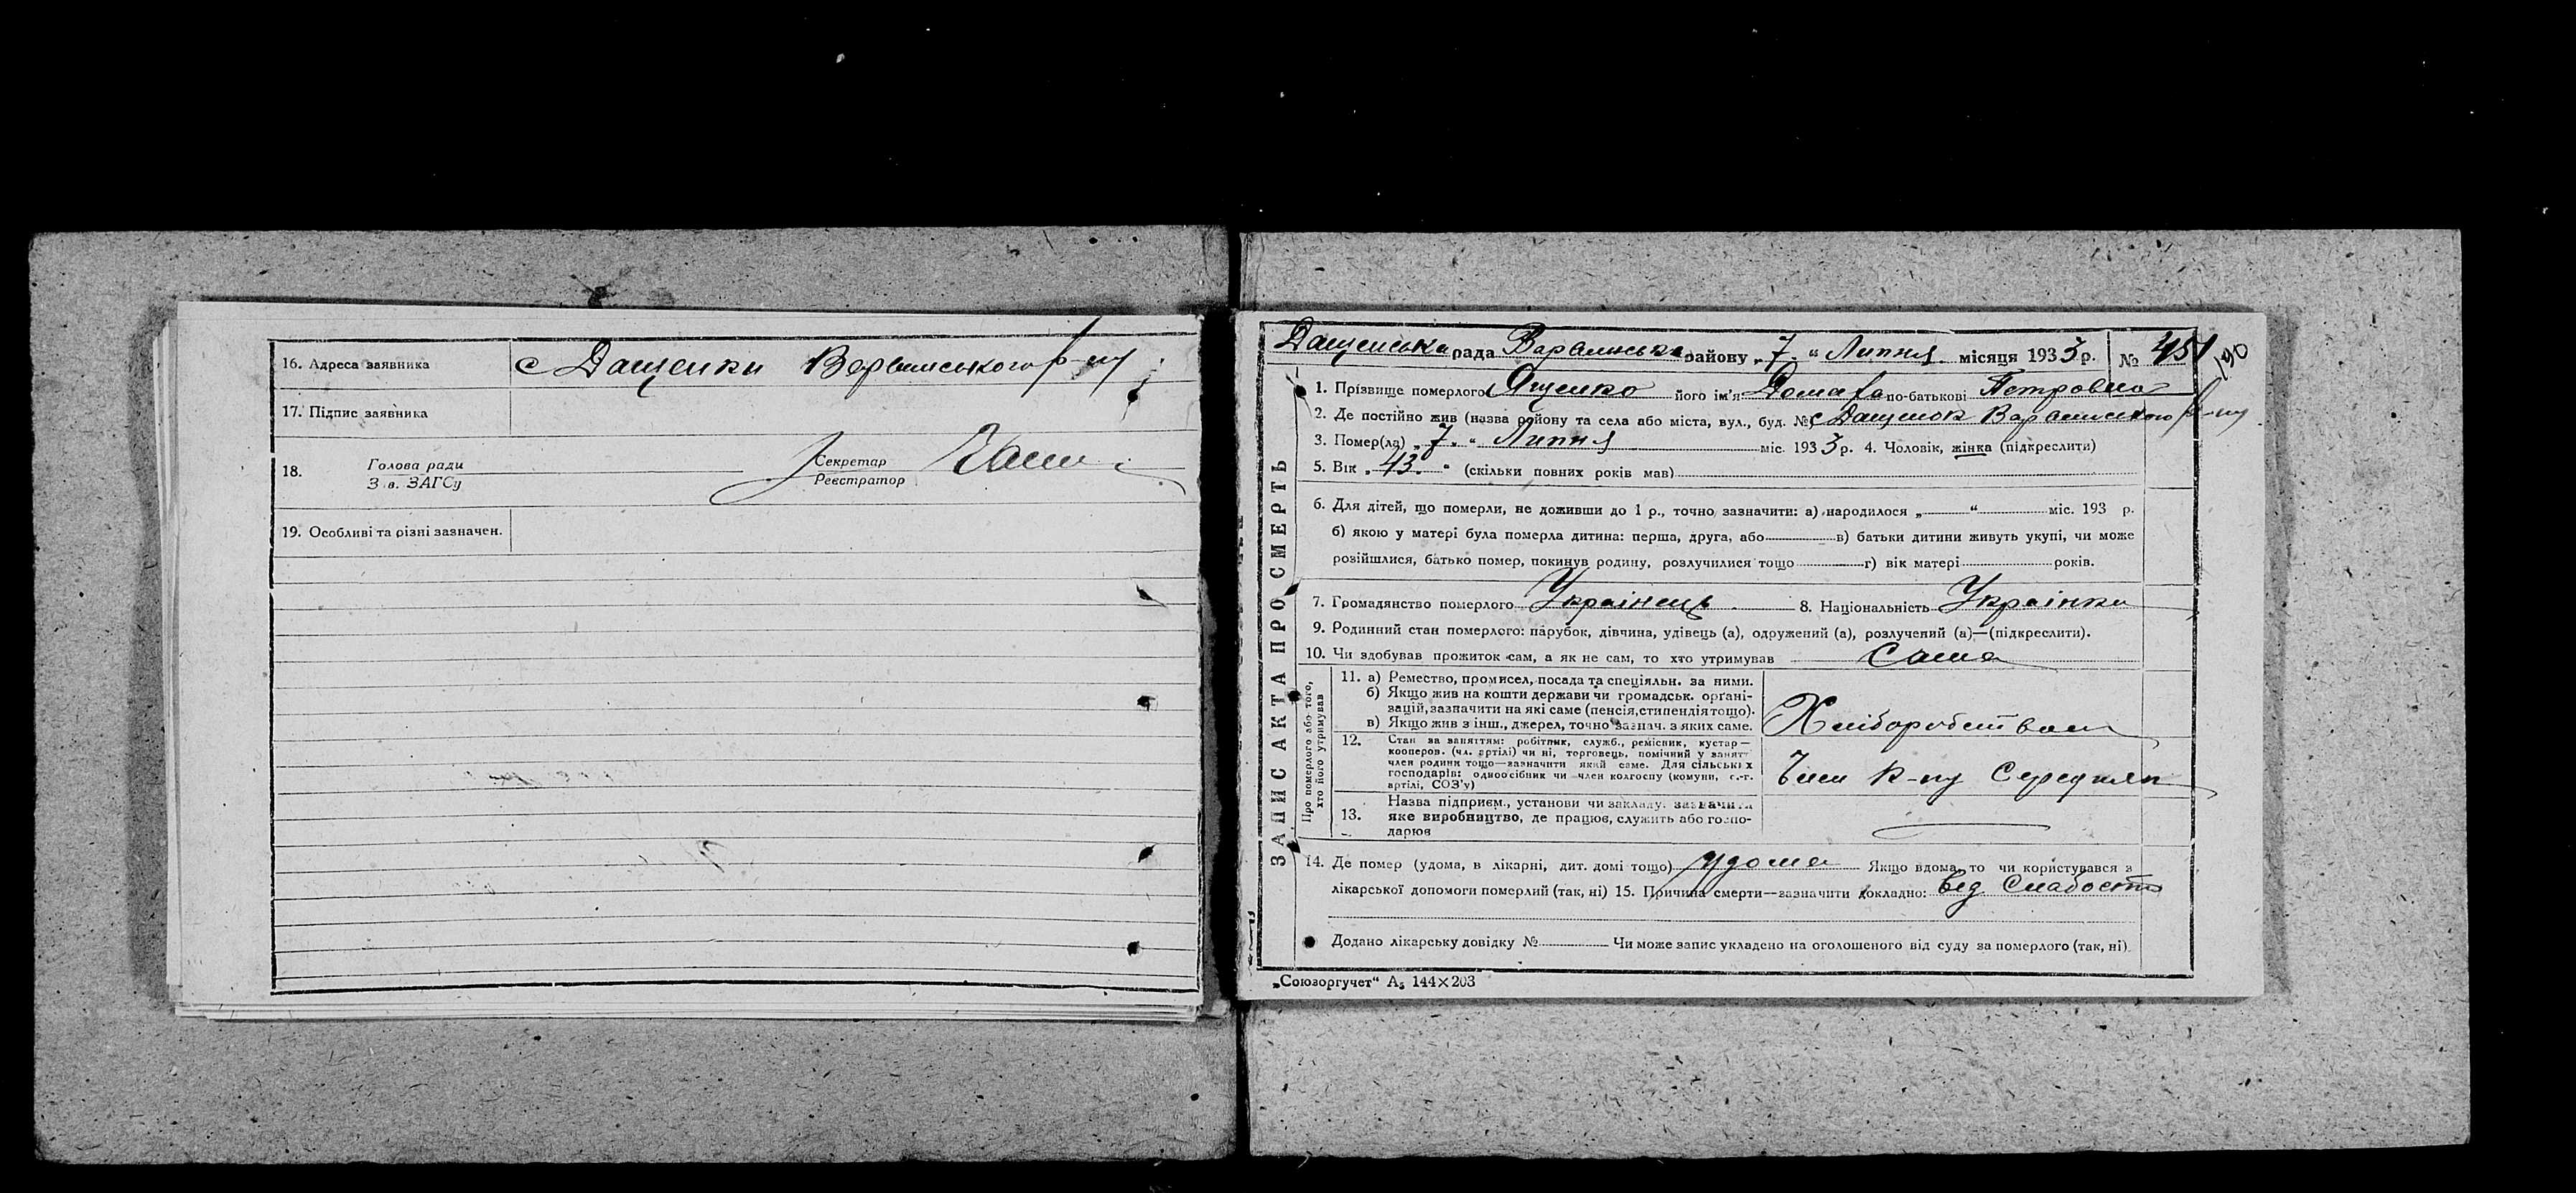 16. Адреса заявника с Дащенки Варвинського р-ну
17. Підпис заявника
18. Голова ради Секретар
Зав. ЗАГСу Реєстратор
19. Особливі та різні зазначен.
Дащенська рада Варвинська району „7“ Липня місяця 1933 р. № 451
190
ЗАПИС АКТА ПРО СМЕРТЬ
1. Прізвище померлого Ященко його ім'я Домаха по-батькові Петровна
2. Де постійно жив (назва району та села або міста, вул., буд. № с Дащенок Варвинського р-ну
3. Помер(ла) „7.“ Липня міс. 1933 р. 4. Чоловік, жінка (підкреслити)
5. Вік „43.“ (скільки повних років мав)
6. Для дітей, що померли, не доживши до 1 р., точно зазначити: а) народилося „ “ міс. 193 р.
б) якою у матері була померла дитина: перша, друга, або в) батьки дитини живуть укупі, чи може
розійшлися, батько помер, покинув родину, розлучилися тощо г) вік матері років.
7. Громадянство померлого Українець 8. Національність Українка
9. Родинний стан померлого: парубок, дівчина, удівець (а), одружений (а), розлучений (а)—(підкреслити).
10. Чи здобував прожиток сам, а як не сам, то хто утримував сама
Про померлого або того, хто його утримував
11. а) Ремество, промисел, посада та спеціяльн. за ними.
б) Якщо жив на кошти держави чи громадськ. органі-
зацій, зазначити на які саме (пенсія, стипендія тощо).
в) Якщо жив з інш., джерел, точно зазнач. з яких саме.
Хліборобством
12. Стан за заняттям: робітник, служб., ремісник, кустар—
кооперов. (чл. артілі) чи ні, торговець, помічний у занятт
член родини тощо—зазначити який саме. Для сільських
господарів: одноосібник чи член колгоспу (комуни, с.-г.
артілі, СОЗ'у)
Член к-пу Середняк
13. Назва підприєм., установи чи закладу. зазначити
яке виробництво, де працює, служить або госпо-
дарює
14. Де помер (удома, в лікарні, дит. домі тощо) удома Якщо вдома, то чи користувався з
лікарської допомоги померлий (так, ні) 15. Причина смерти—зазначити докладно: від Слабости
Додано лікарську довідку № Чи може запис укладено на оголошеного від суду за померлого (так, ні)
„Союзоргучет“ А₅ 144×203